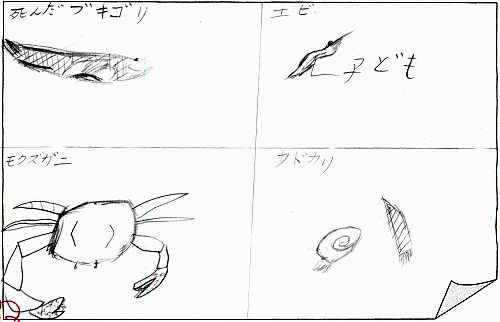 死んだブキゴリ
エビ
子ども
モクズガニ
ヤドカリ